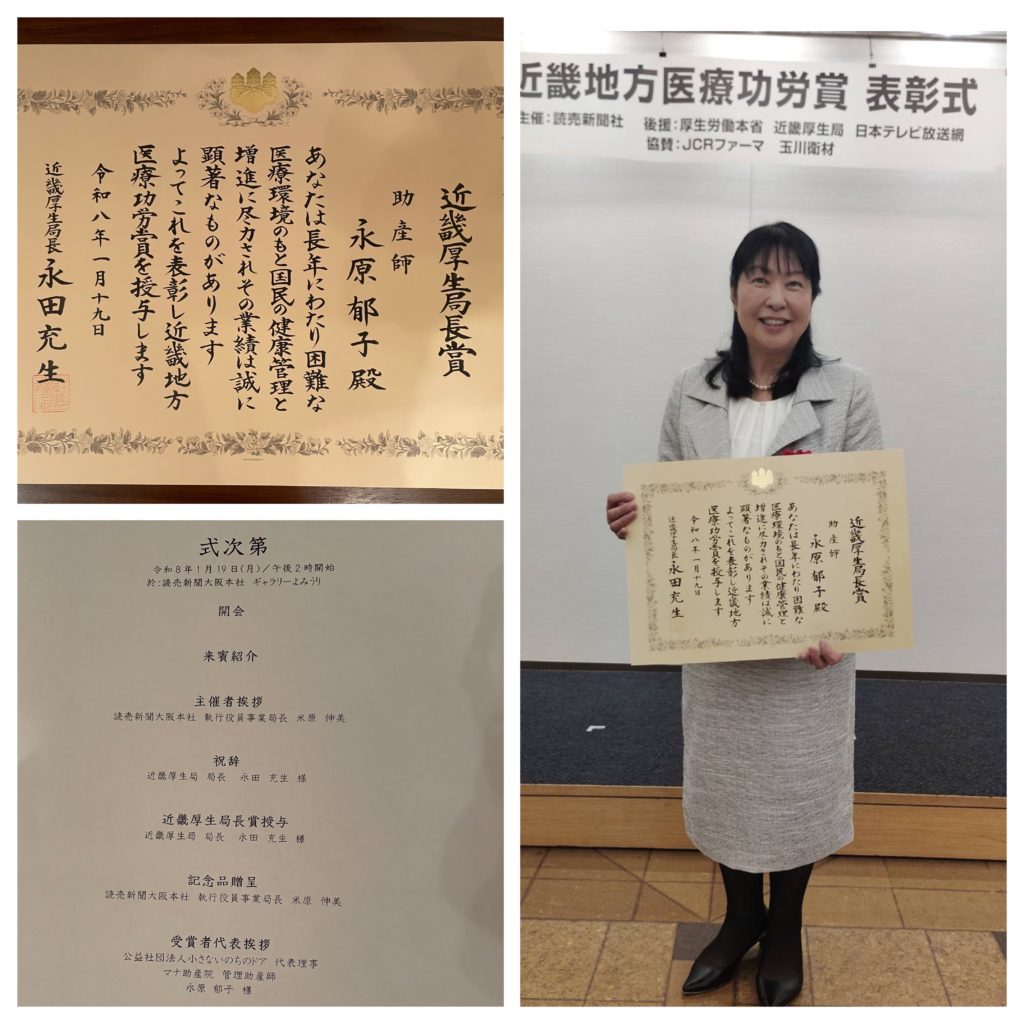 近畿厚生局長賞
助産師
永原郁子殿
あなたは長年にわたり困難な
医療環境のもと国民の健康管理と
増進に尽力されその業績は誠に
顕著なものがあります
よってこれを表彰し近畿地方
医療功労賞を授与します
令和八年一月十九日
近畿厚生局長 永田充生
式次第
令和8年1月19日(月)/午後2時開始
於:読売新聞大阪本社 ギャラリーよみうり
開会
来賓紹介
主催者挨拶
読売新聞大阪本社 執行役員事業局長 米原 伸美
祝辞
近畿厚生局 局長 永田 充生 様
近畿厚生局長賞授与
近畿厚生局 局長 永田 充生 様
記念品贈呈
読売新聞大阪本社 執行役員事業局長 米原 伸美
受賞者代表挨拶
公益社団法人小さないのちのドア 代表理事
マナ助産院 管理助産師
永原 郁子 様
近畿地方医療功労賞 表彰式
主催:読売新聞社 後援:厚生労働本省 近畿厚生局 日本テレビ放送網
協賛:JCRファーマ 玉川衛材
近畿厚生局長賞
助産師
永原郁子殿
あなたは長年にわたり困難な
医療環境のもと国民の健康管理と
増進に尽力されその業績は誠に
顕著なものがあります
よってこれを表彰し近畿地方
医療功労賞を授与します
令和八年一月十九日
近畿厚生局長 永田充生